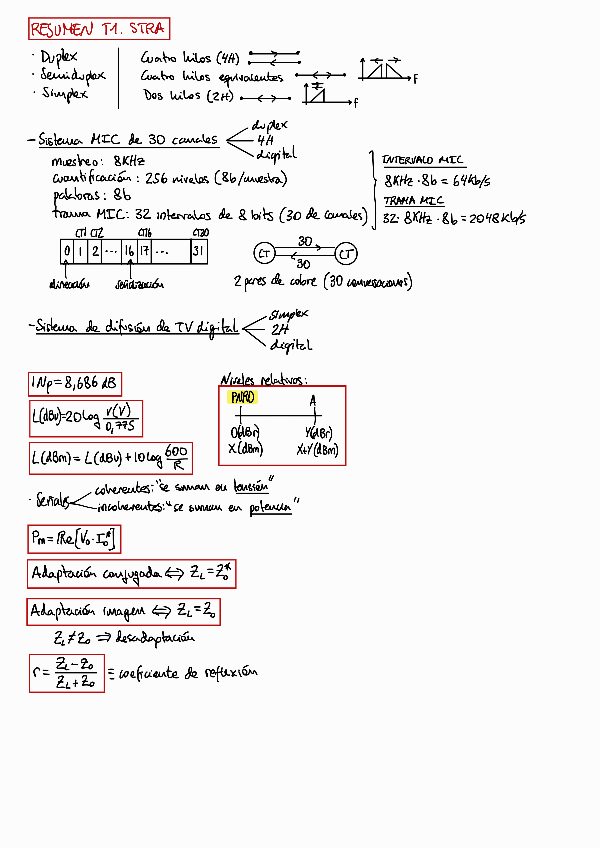 RESUMEN T1. STRA
· Duplex
· Semiduplex
· Simplex
Cuatro hilos (4H)
Cuatro hilos equivalentes
Dos hilos (2H)
F
F
- Sistema MIC de 30 canales
duplex
4H
digital
muestreo: 8KHz
cuantificación: 256 niveles (8b/muestra)
palabras: 8b
trama MIC: 32 intervalos de 8 bits (30 de canales)
INTERVALO MIC
8KHz · 8b = 64Kb/s
TRAMA MIC
32 · 8KHz · 8b = 2048 Kb/s
CT1 CT2 CT16 CT30
0 1 2 ... 16 17 ... 31
alineación señalización
CT 30 CT
30
2 pares de cobre (30 conversaciones)
- Sistema de difusión de TV digital
simplex
2H
digital
1Np = 8,686 dB
L(dBu)=20log V(V)/0,775
L(dBm) = L(dBu) + 10log 600/R
Niveles relativos:
PNRO A
0(dBr) Y(dBr)
X(dBm) X+Y(dBm)
· Señales
coherentes: "se suman en tensión"
incoherentes: "se suman en potencia"
Pm = Re[V0 · I0*]
Adaptación conjugada ⇔ ZL = Z0*
Adaptación imagen ⇔ ZL = Z0
ZL ≠ Z0 ⇒ desadaptación
r = ZL - Z0 / ZL + Z0 ≡ coeficiente de reflexión